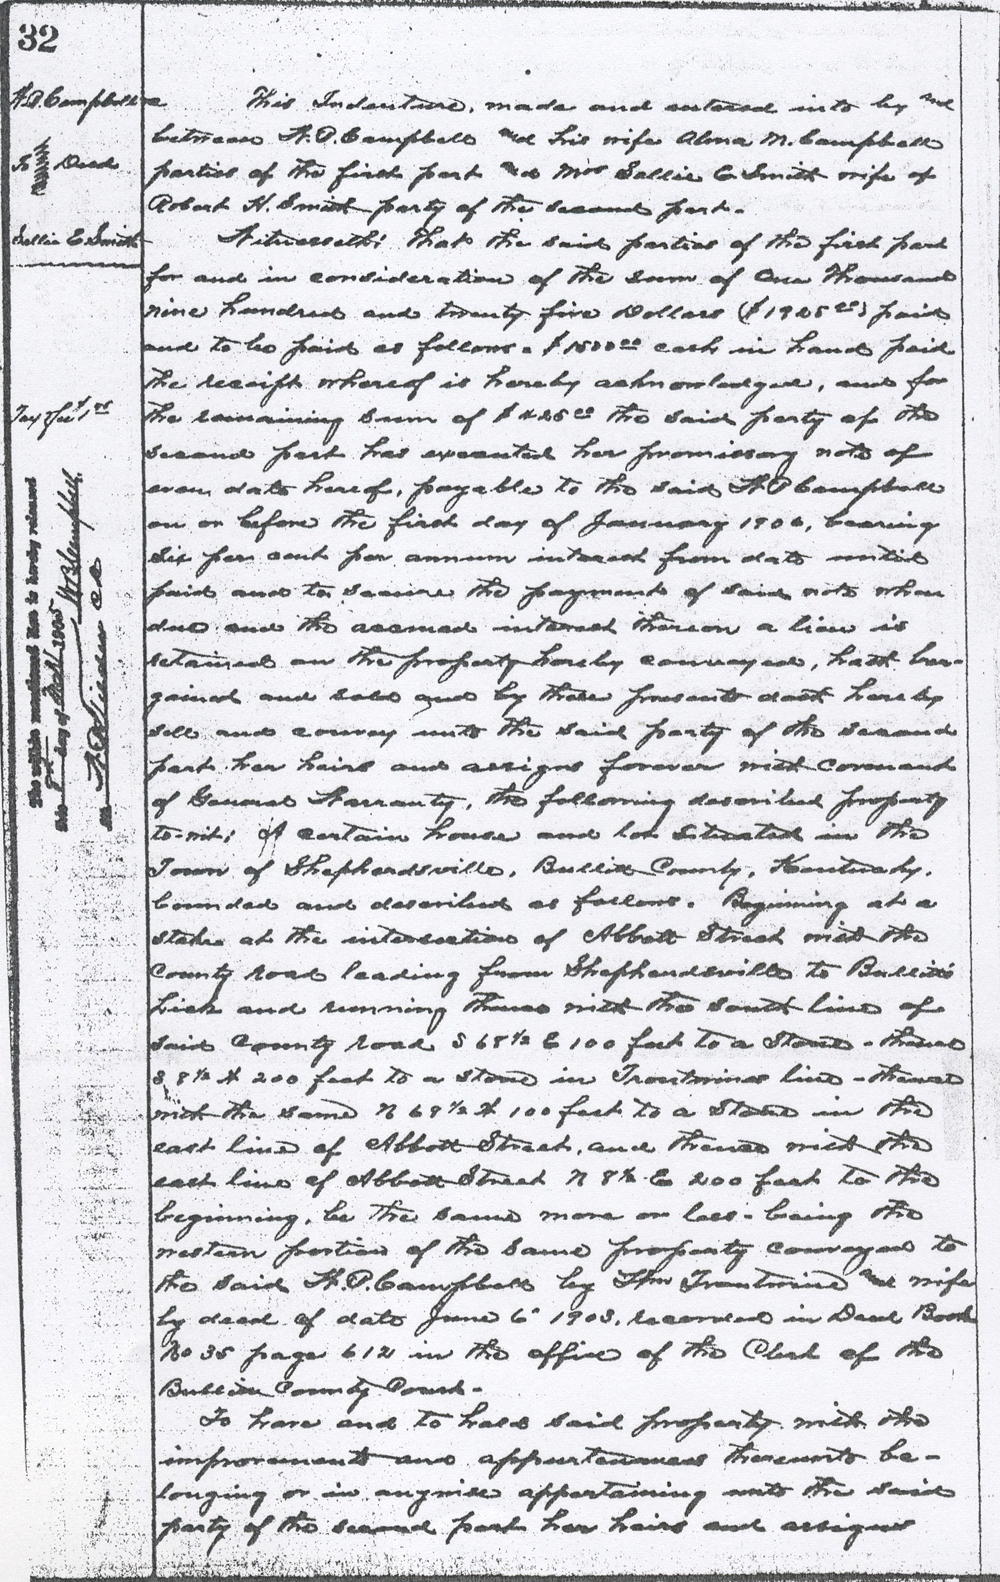 32
W.P. Campbell &c
To Deed
Sallie E Smith
Tax Fee 1.00
The within mentioned lien is hereby released
this day of 1905 W P Campbell
This Indenture, made and entered into by and
between W.P. Campbell and his wife Alma M. Campbell
parties of the first part and Mrs Sallie E Smith wife of
Robert H. Smith party of the second part.
Witnesseth: That the said parties of the first part
for and in consideration of the sum of One Thousand
nine hundred and twenty five Dollars ($1925 00) paid
and to be paid as follows. $1500 00 cash in hand paid
the receipt whereof is hereby acknowledged, and for
the remaining sum of $425 00 the said party of the
second part has executed her promissory note of
even date hereof, payable to the said W P Campbell
on or before the first day of January 1906, bearing
six per cent per annum interest from date until
paid and to secure the payment of said note when
due and the accrued interest thereon a lien is
retained on the property hereby conveyed, hath bar-
gained and sold and by these presents doth hereby
sell and convey unto the said party of the second
part her heirs and assigns forever with Covenant
of General Warranty, the following described property
to-wit: A certain house and lot situated in the
Town of Shepherdsville, Bullitt County, Kentucky,
bounded and described as follows. Beginning at a
stake at the intersection of Abbott Street with the
County road leading from Shepherdsville to Bullitt's
Lick and running thence with the south line of
said County road S 68½ E 100 feet to a Stone - thence
S 8½ W 200 feet to a stone in Troutwines line - thence
with the same N 68½ W 100 feet to a Stone in the
east line of Abbott Street, and thence with the
east line of Abbott Street N 8½ E 200 feet to the
beginning, be the same more or less - being the
western portion of the same property conveyed to
the said W.P. Campbell by Wm Troutwine and wife
by deed of date June 6" 1903, recorded in Deed Book
No 35 page 612 in the office of the Clerk of the
Bullitt County Court.
To have and to hold said property with the
improvements and appurtenances thereunto be-
longing or in anywise appertaining unto the said
party of the second part her heirs and assigns